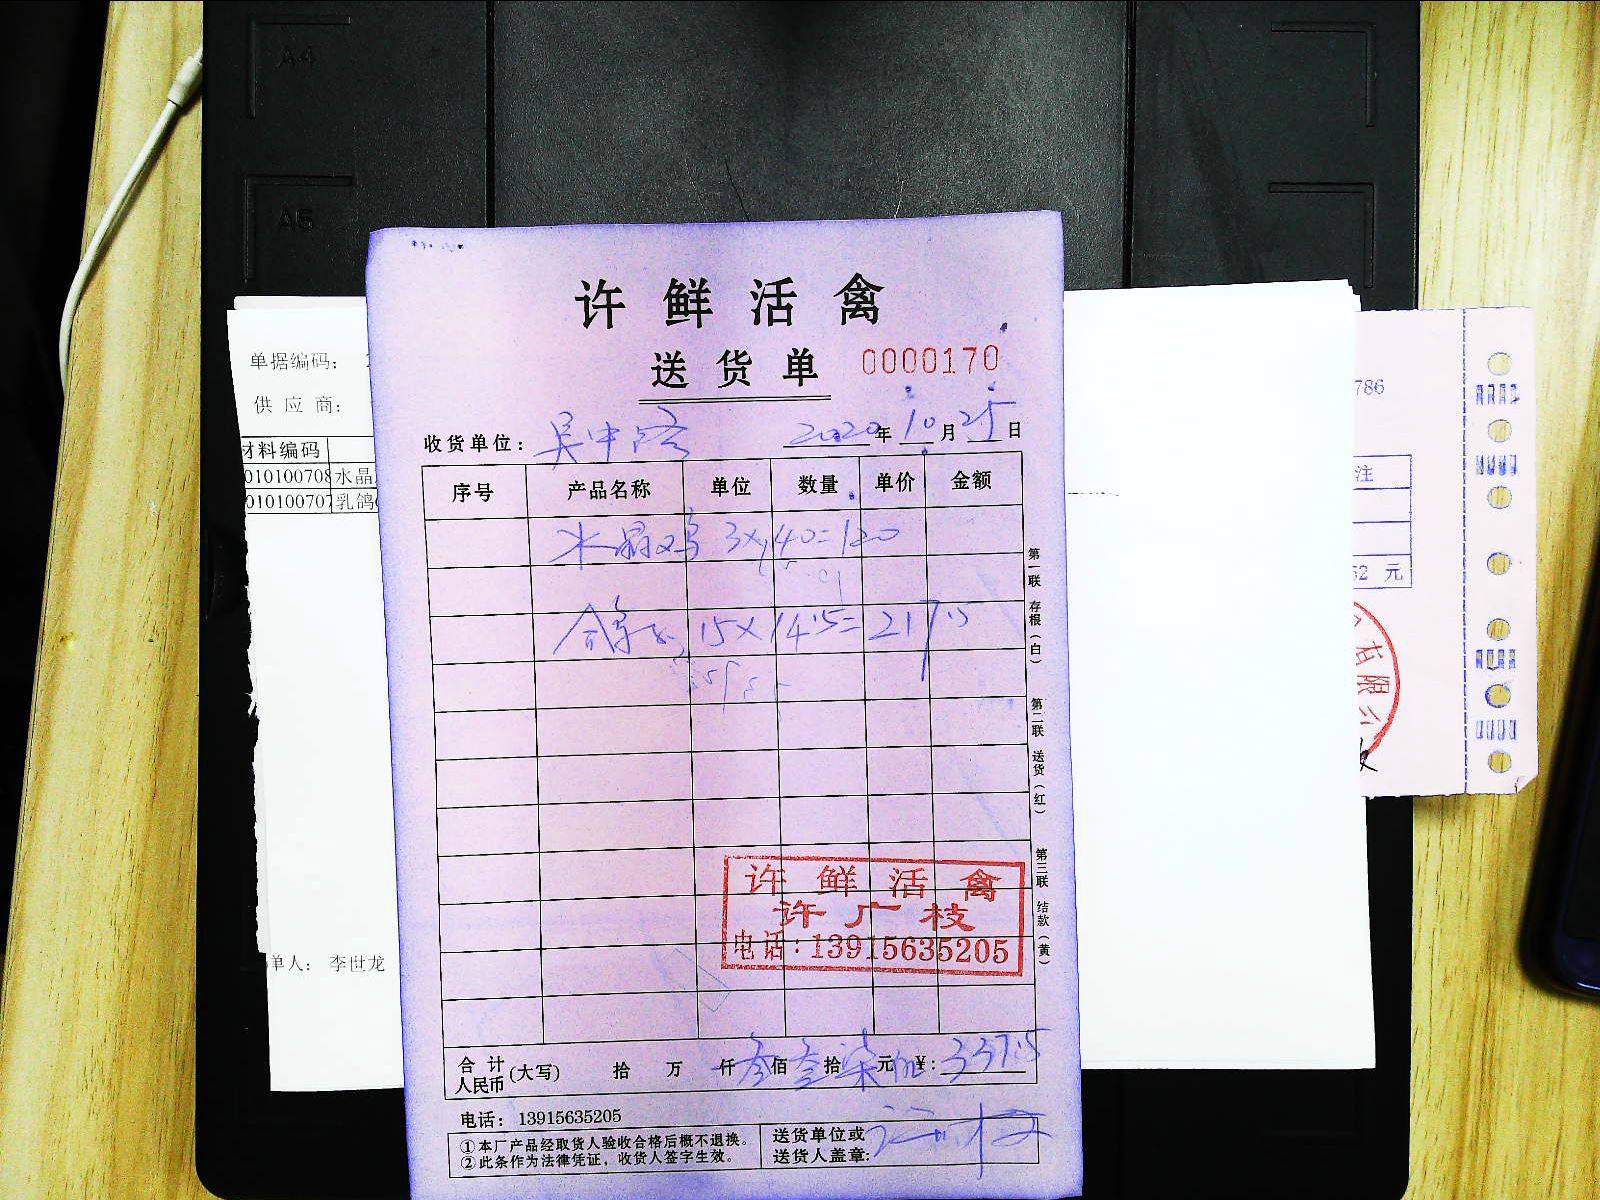 A4
A5
许鲜活禽
送货单 0000170
收货单位：吴中路 2020年10月25日
序号 产品名称 单位 数量 单价 金额
水晶鸡 3×40=120
鸽子 15×14.5=217.5
第一联 存根（白）
第二联 送货（红）
第三联 结款（黄）
许鲜活禽
许广枝
电话：13915635205
合计人民币(大写) 拾 万 仟 叁佰 叁拾 柒元 ¥：337.5
电话：13915635205
①本厂产品经取货人验收合格后概不退换。
②此条作为法律凭证，收货人签字生效。
送货单位或
送货人盖章：
单据编码：
供应商：
材料编码
010100708 水晶
010100707 乳鸽
单人：李世龙
786
注
62 元
有限公